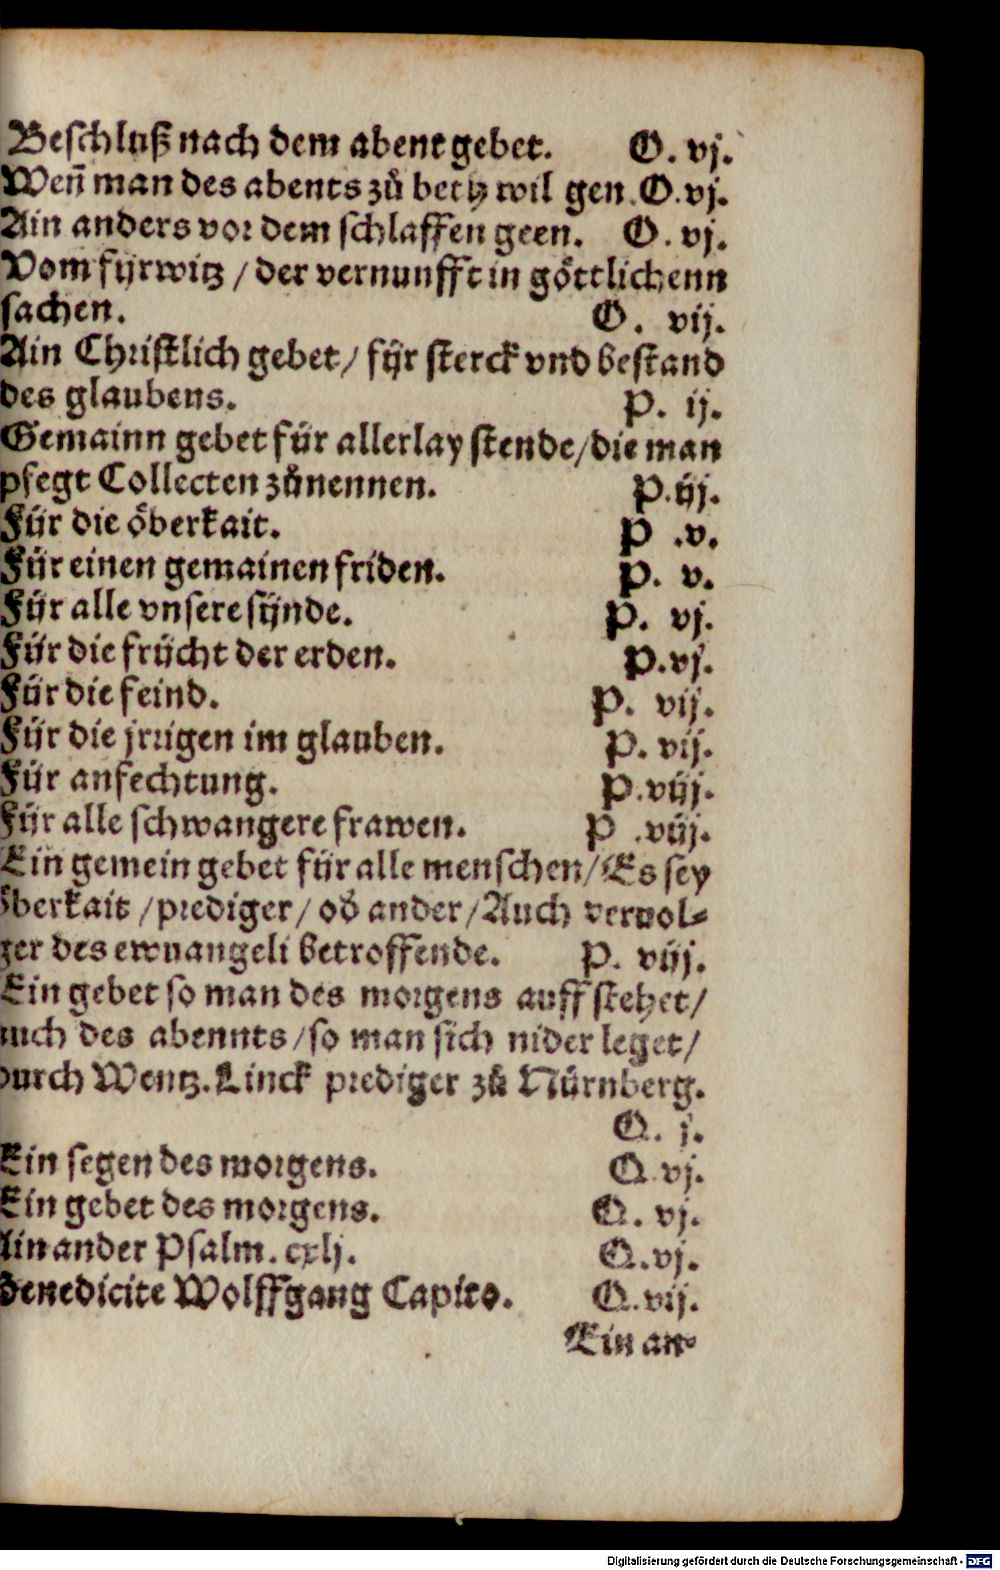 Beschluß nach dem abent gebet. O. vj.
Weñ man des abents zů beth wil gen. O.vj.
Ain anders vor dem schlaffen geen. O. vj.
Vom fyrwitz / der vernunfft in göttlichenn
sachen. O. vij.
Ain Christlich gebet/ fÿr sterck vnd bestand
des glaubens. P. ij.
Gemainn gebet für allerlay stende/die man
pfegt Collecten zůnennen. P.iij.
Für die öberkait. P .v.
Für einen gemainen friden. P. v.
Für alle vnsere sÿnde. P. vj.
Für die frÿcht der erden. P.vj.
Für die feind. P. vij.
Für die jrrigen im glauben. P. vij.
Für anfechtung. P.viij.
Für alle schwangere frawen. P .viij.
Ein gemein gebet für alle menschen/Es sey
öberkait /prediger/ od ander/Auch vervol⸗
ger des ewuangeli betroffende. P. viij.
Ein gebet so man des morgens auff stehet/
auch des abennts/so man sich nider leget/
durch Wentz.Linck prediger zů Nürnberg.
Q. j.
Ein segen des morgens. Q vj.
Ein gebet des morgens. Q. vj.
Ain ander Psalm. cxlj. Q.vj.
Benedicite Wolffgang Capito. Q.vij.
Ein an⸗
Digitalisierung gefördert durch die Deutsche Forschungsgemeinschaft - DFG